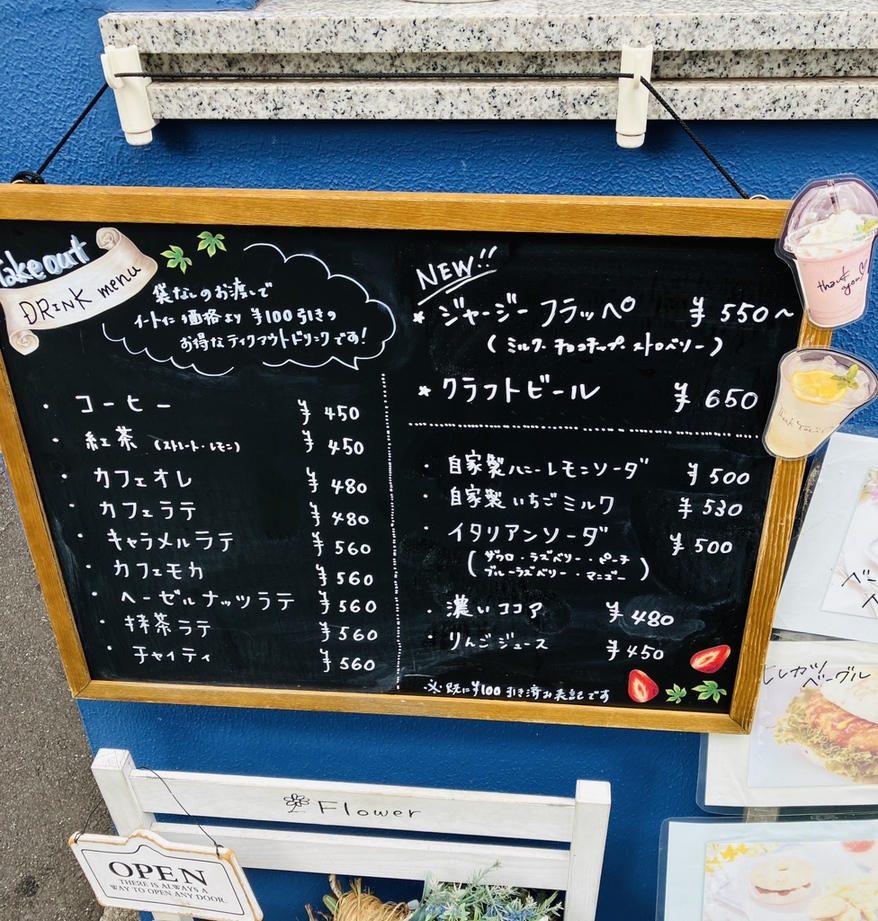 Take out
DRINK menu
袋なしのお渡しで
イートイン価格より ¥100引きの
お得なテイクアウトドリンクです!
・コーヒー ¥450
・紅茶 (ストレート・レモン) ¥450
・カフェオレ ¥480
・カフェラテ ¥480
・キャラメルラテ ¥560
・カフェモカ ¥560
・ヘーゼルナッツラテ ¥560
・抹茶ラテ ¥560
・チャイティ ¥560
NEW!!
* ジャージーフラッペ ¥550~
(ミルク・チョコチップ・ストロベリー)
* クラフトビール ¥650
・自家製ハニーレモンソーダ ¥500
・自家製いちごミルク ¥530
・イタリアンソーダ ¥500
(ザクロ・ラズベリー・ピーチ
ブルーラズベリー・マンゴー)
・濃いココア ¥480
・りんごジュース ¥450
※既に¥100引き済み表記です
thank you
ヒレカツ
ベーグル
Flower
OPEN
THERE IS ALWAYS A
WAY TO OPEN ANY DOOR.